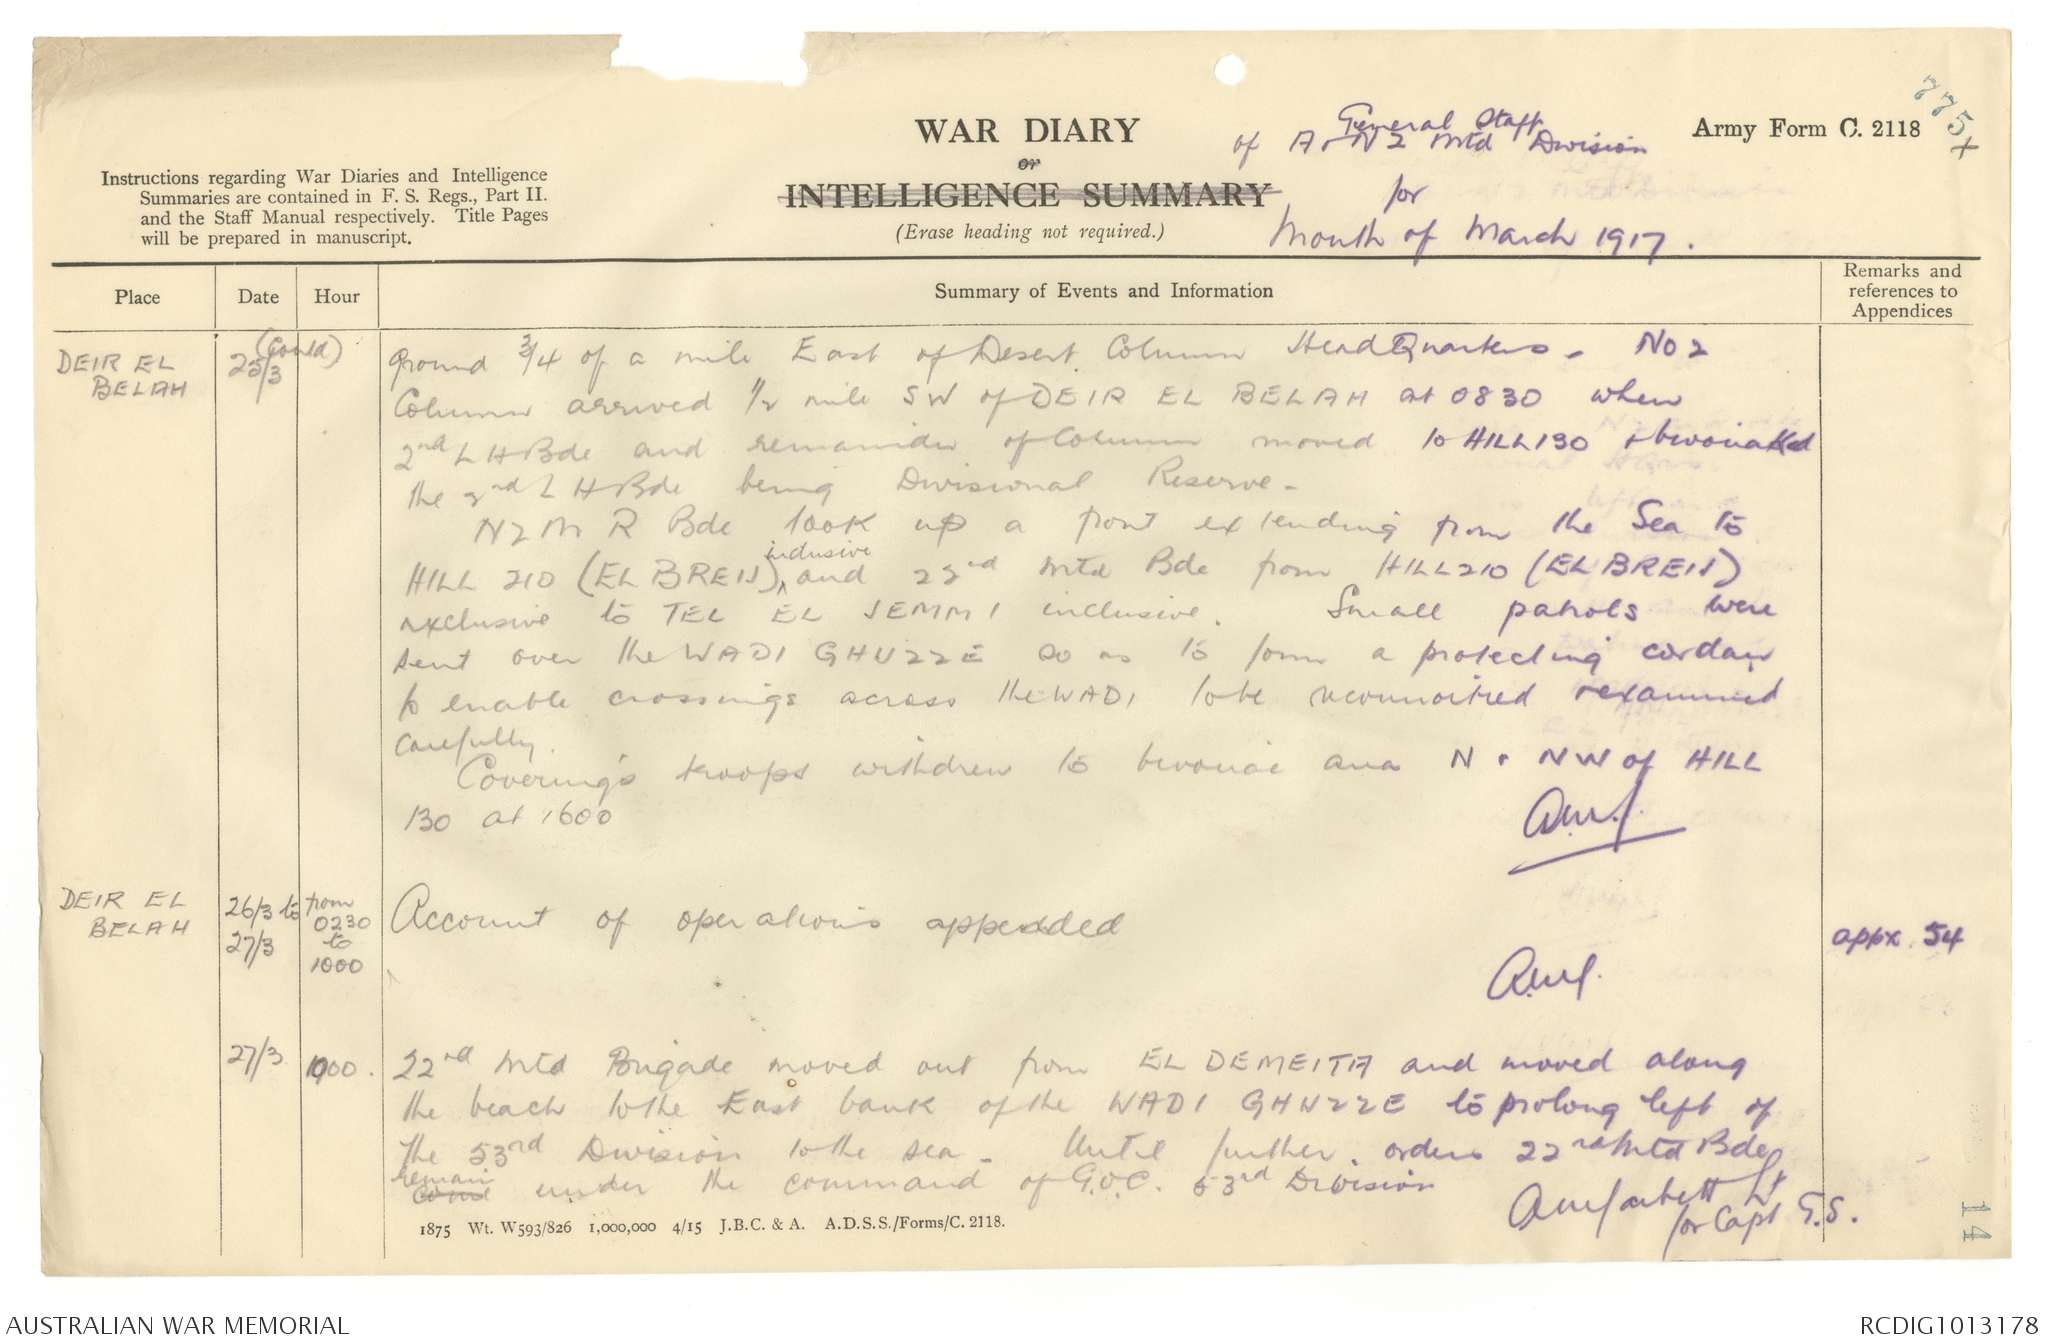 775+
WAR DIARY
or
INTELLIGENCE SUMMARY
(Erase heading not required.)
Army Form C. 2118
General Staff
of A & N Z Mtd Division
for
Month of March 1917.
Instructions regarding War Diaries and Intelligence
Summaries are contained in F. S. Regs., Part II.
and the Staff Manual respectively. Title Pages
will be prepared in manuscript.
Place
Date
Hour
Summary of Events and Information
Remarks and
references to
Appendices
DEIR EL
BELAH
25/3
(Contd)
ground 3/4 of a mile East of Desert Column HeadQuarters - No 2
Column arrived 1/2 mile SW of DEIR EL BELAH at 0830 when
2nd L H Bde and remainder of Column moved to HILL 130 & bivouaked
the 2nd L H Bde being Divisional Reserve -
N Z M R Bde took up a front extending from the Sea to
HILL 210 (EL BREIJ) inclusive and 22nd Mtd Bde from HILL 210 (EL BREIJ)
exclusive to TEL EL JEMMI inclusive. Small patrols were
sent over the WADI GHUZZE so as to form a protecting cordon
to enable crossings across the WADI to be reconnoitred & examined
carefully.
Coverings troops withdrew to bivouac area N & NW of HILL
130 at 1600
DEIR EL
BELAH
26/3 to
27/3
from
0230
to
1000
Account of operations appended
appx. 54
27/3
1000.
22nd Mtd Brigade moved out from EL DEMEITA and moved along
the beach to the East bank of the WADI GHUZZE to prolong left of
the 53rd Division to the sea - Until further orders 22nd Mtd Bde
remain
come under the command of G.O.C. 53rd Division
for Capt G.S.
1875 Wt. W593/826 1,000,000 4/15 J.B.C. & A. A.D.S.S./Forms/C. 2118.
14
AUSTRALIAN WAR MEMORIAL
RCDIG1013178